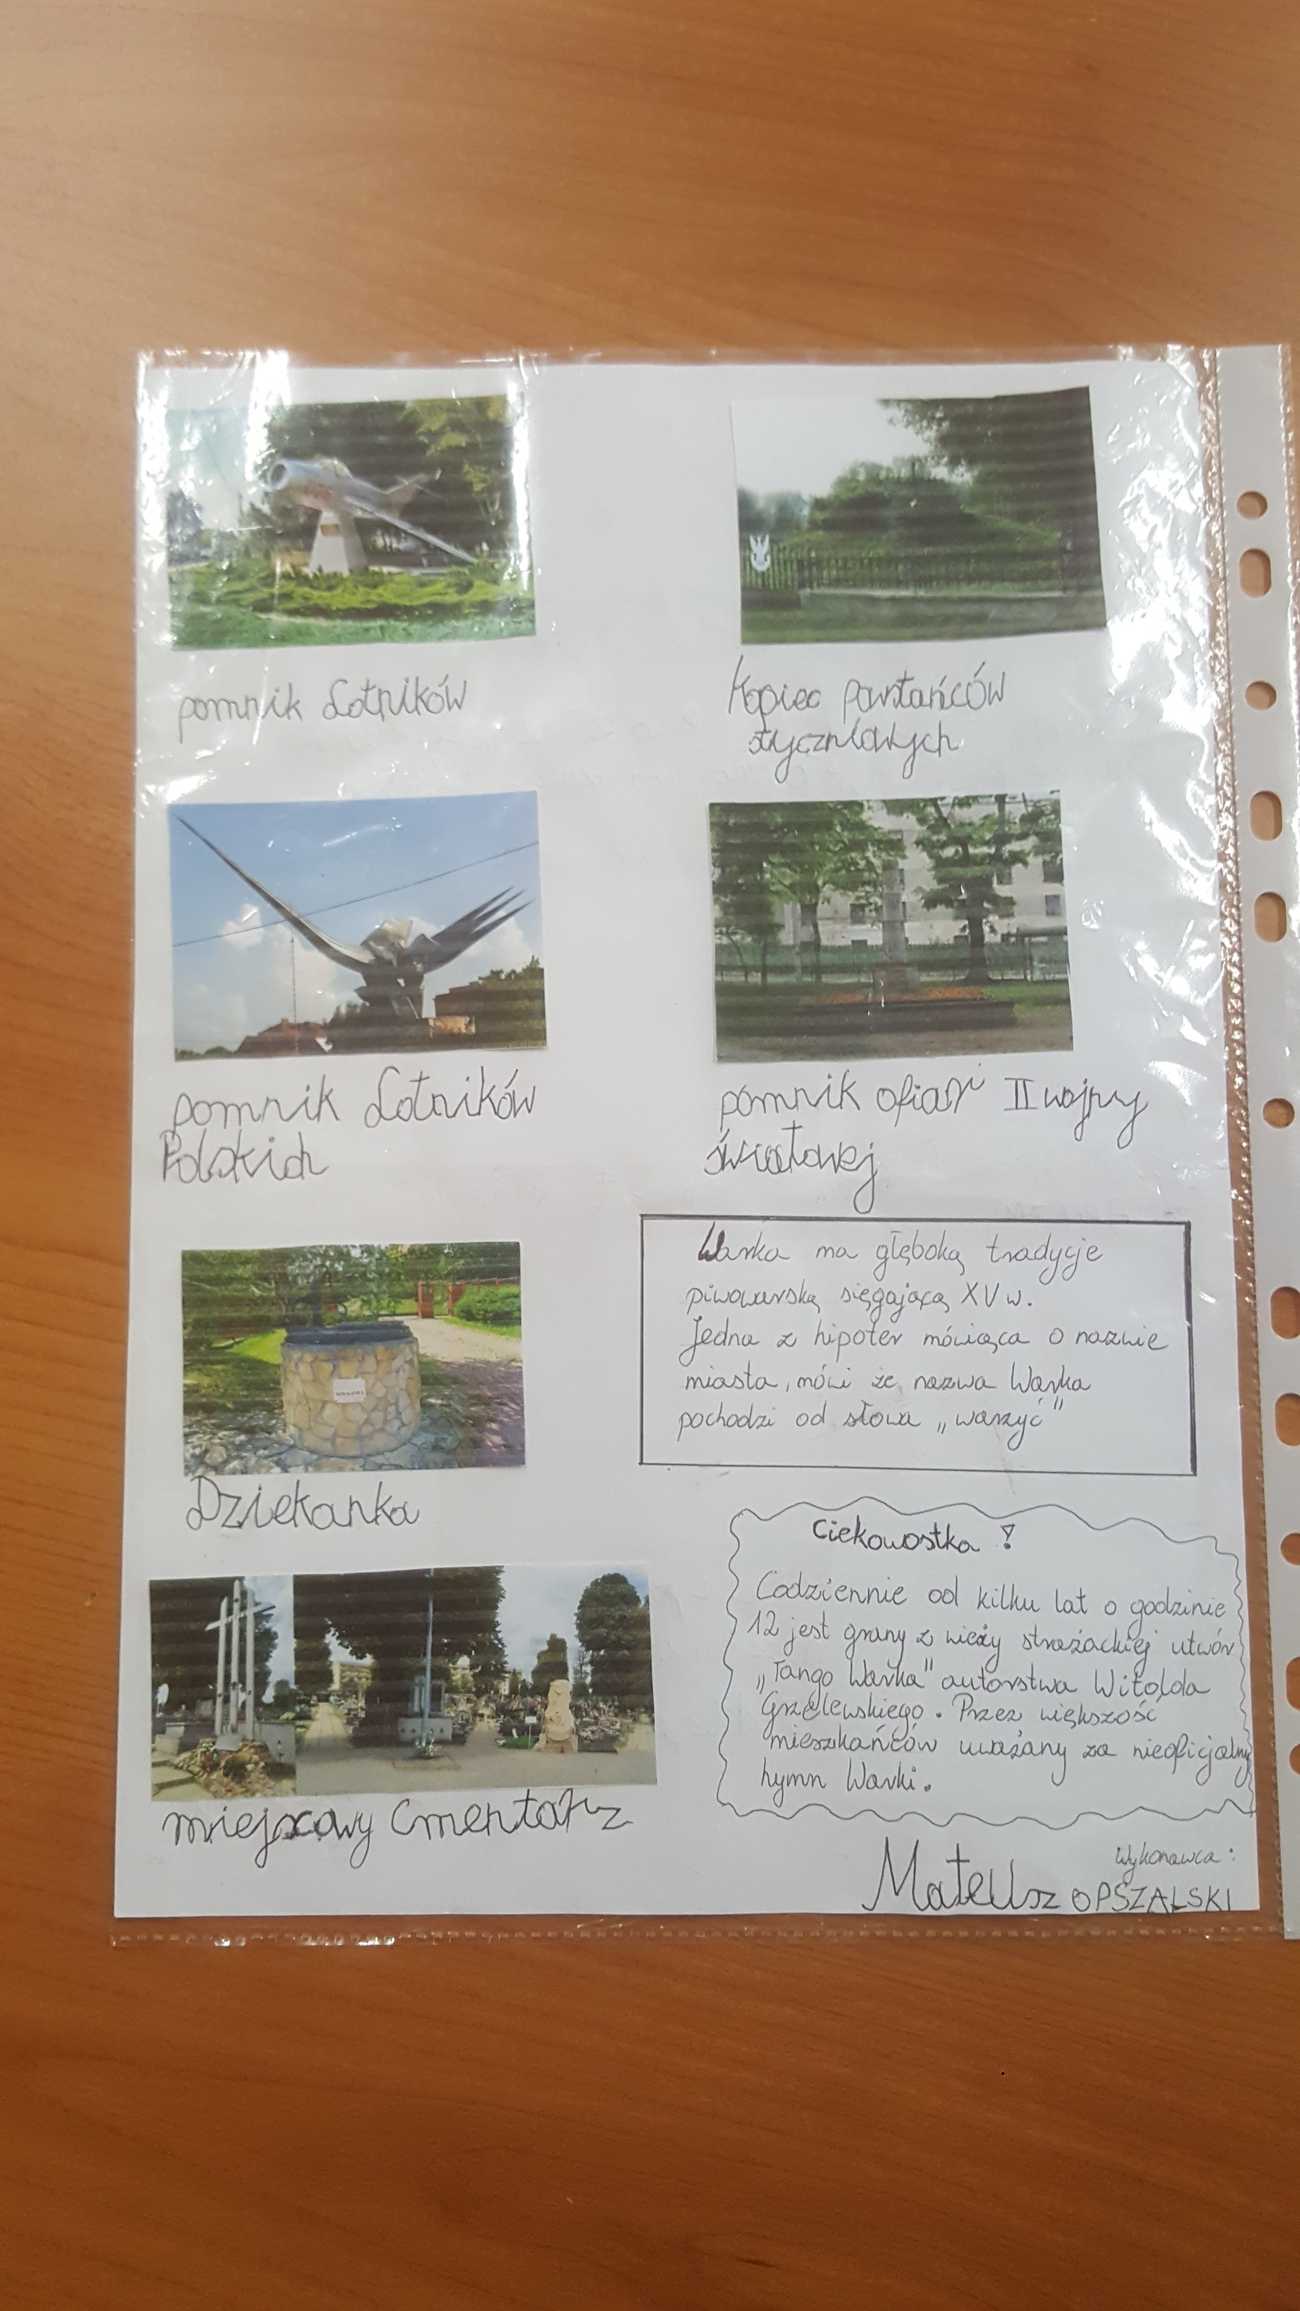 pomnik Lotników
Kopiec powstańców
styczniowych
pomnik Lotników
Polskich
pomnik ofiar II wojny
światowej
Warka ma głęboką tradycje
piwowarską sięgającą XV w.
Jedna z hipotez mówiąca o nazwie
miasta, mówi że nazwa Warka
pochodzi od słowa „warzyć"
Dziekanka
Ciekawostka!
Codziennie od kilku lat o godzinie
12 jest grany z wieży strażackiej utwór
„Tango Warka" autorstwa Witolda
Grzelewskiego. Przez większość
mieszkańców uważany za nieoficjalny
hymn Warki.
miejscowy Cmentarz
Wykonawca:
Mateusz OPSZALSKI